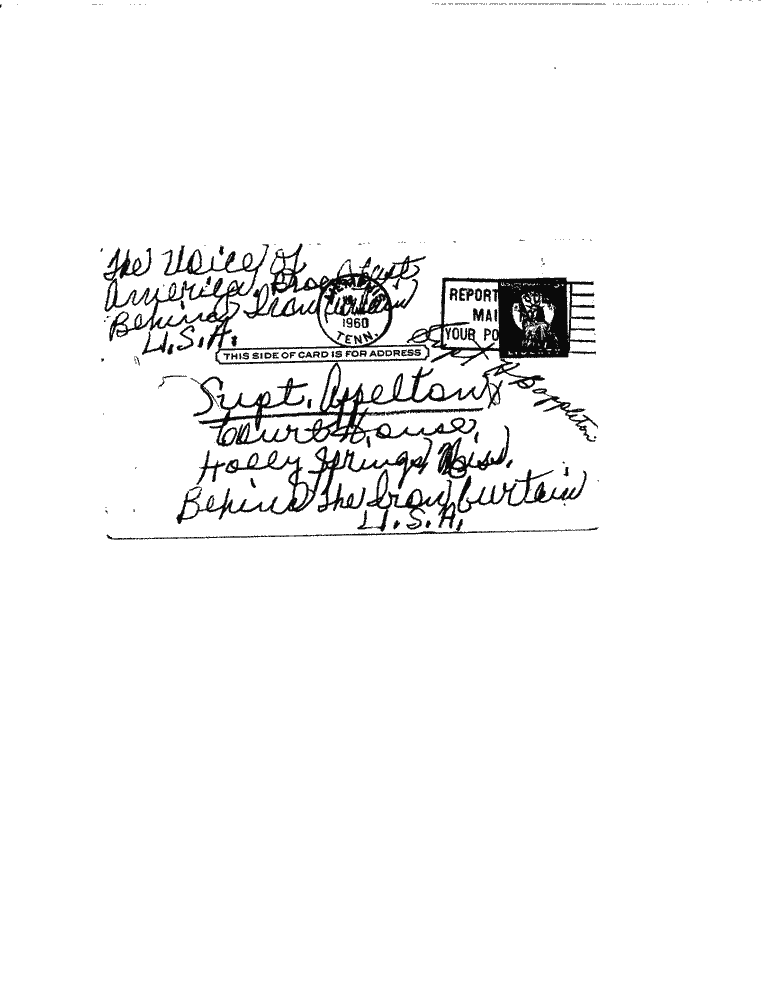 The Voice of
America Broadcast
Behind Iron Curtain
U.S.A.
MEMPHIS
1960
TENN.
REPORT
MAI
YOUR PO
THIS SIDE OF CARD IS FOR ADDRESS
Supt. Appelton
Court House,
Holly Springs, Miss.
Behind the Iron Curtain
U.S.A.